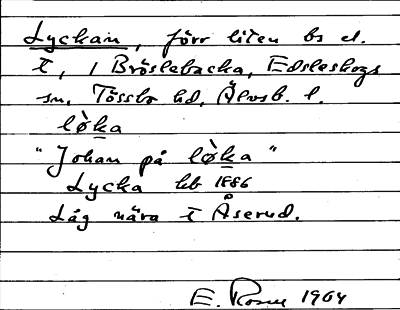 Lyckan, förr liten bs el.
t, i Bröslebacka, Edsleskogs
sn, Tössbo hd, Älvsb. l.
lø̀ka
"Johan på lø̀ka"
Lycka hb 1886
Låg nära t Åserud.
E. Rosen 1964